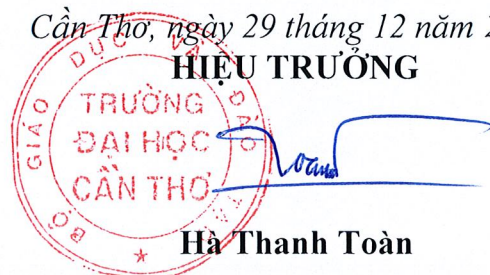 Cần Thơ, ngày 29 tháng 12 năm 2
HIỆU TRƯỞNG
BỘ GIÁO DỤC VÀ ĐÀO TẠO
TRƯỜNG
ĐẠI HỌC
CẦN THƠ
Hà Thanh Toàn